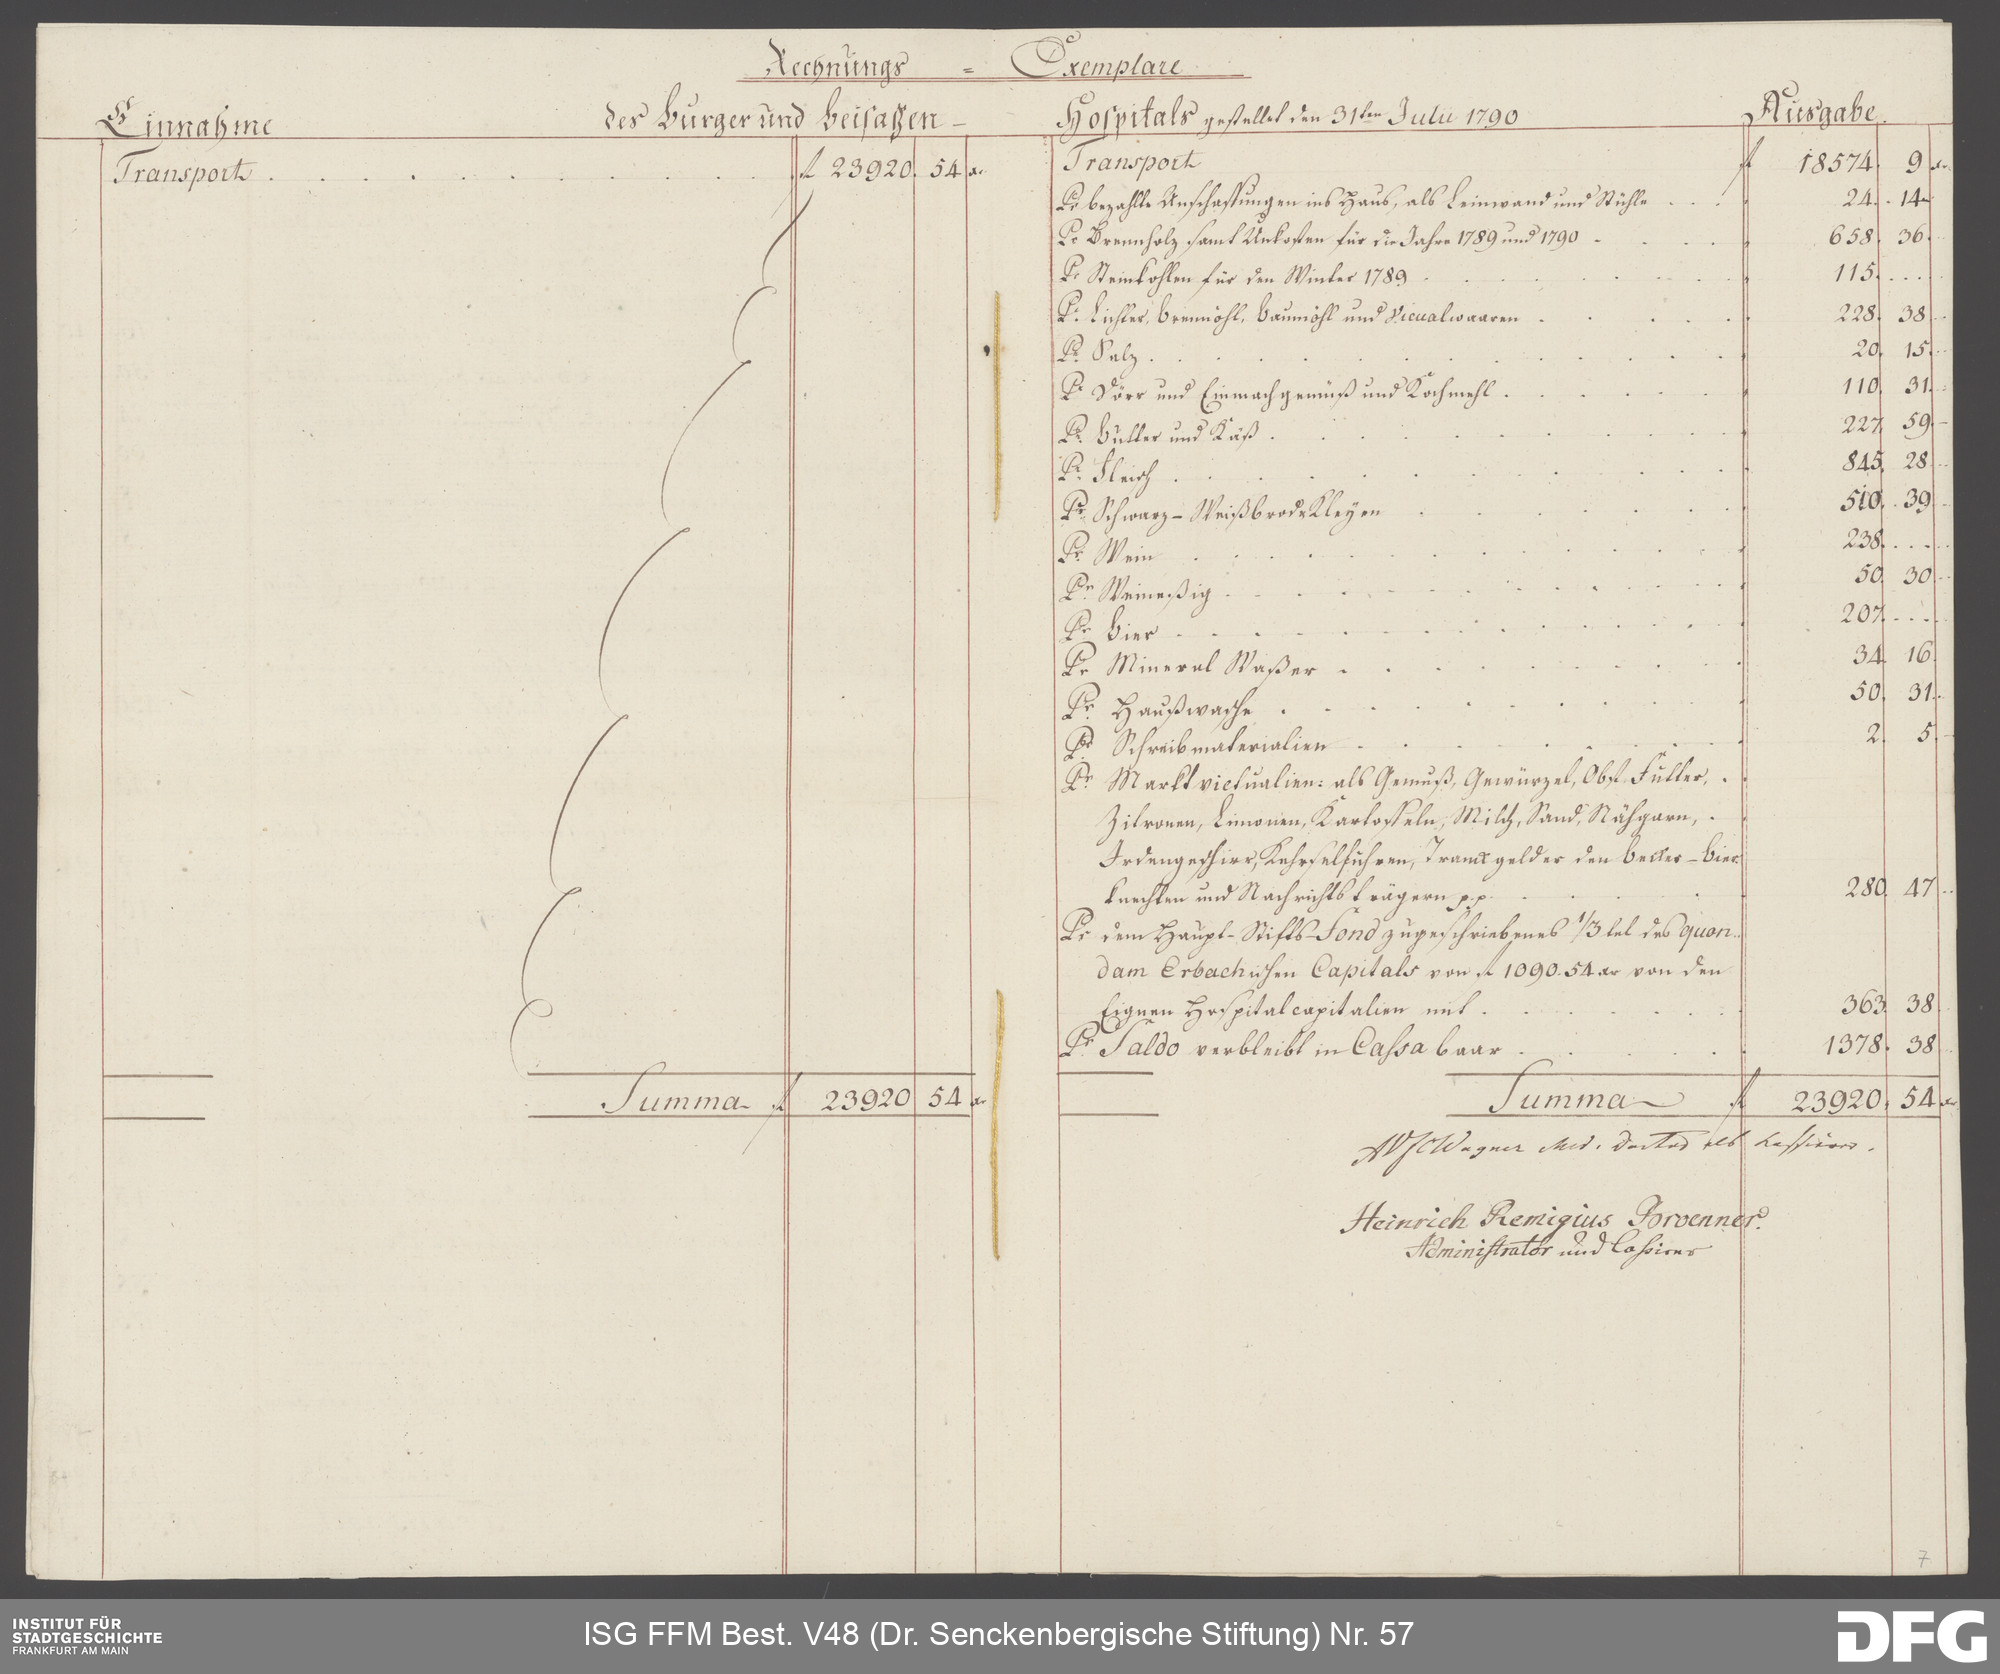 Rechnungs = Exemplare
Einnahme des Burger und Beisaßen - Hospitals gestellet den 31ten Julii 1790 Ausgabe.
Transport . . . . . . . . . . fl 23920. 54 xr
Summa fl 23920 54 xr
Transport fl 18574. 9 xr
Pr bezahlte Anschaffungen ins Haus, als Leinwand und Stühle . . . 24. 14
Pr Brennholz samt Unkosten für die Jahre 1789 und 1790 . . . 658. 36.
Pr Steinkohlen für den Winter 1789 . . . 115. . . .
Pr Lichter, Brennöhl, Baumöhl und waaren . . . 228. 38
Pr Salz . . . 20. 15.
Pr Dörr und Einmachgemüß und Kochmehl . . . 110. 31.
Pr Butter und Käß . . . 227. 59.
Pr Fleisch . . . 845. 28.
Pr Schwarz- Weißbrod & Kleyen . . . 510. 39.
Pr Wein . . . 238. . . .
Pr Weineßig . . . 50. 30
Pr Bier . . . 207. . . .
Pr Mineral Waßer . . . 34. 16.
Pr Haußwasche . . . 50. 31.
Pr Schreibmaterialien . . . 2. 5.
Pr Marktvictualien: als Gemuß, Gewürzel, Obst, Futter, .
Zitronen, Limonen, Kartoffeln, Milch, Sand, Nähgarn, .
Irdengeschirr, Kehrselfuhren, Trankgelder den Becker- Bier
knechten und Nachrichtsträgern p.p. . . . 280. 47
Pr dem Haupt-Stifts-Fond zugeschriebenes 1/3tel des quon-
dam Erbachischen Capitals von fl 1090. 54 xr von den
Eignen Hospitalcapitalien mit . . . 363. 38
Pr Saldo verbleibt in Cassa baar . . . 1378. 38
Summa fl 23920. 54 xr
Wagner Med. Doctor als Cassierer.
Heinrich Remigius Broenner.
Administrator und Cassirer
7
INSTITUT FÜR
STADTGESCHICHTE
FRANKFURT AM MAIN
ISG FFM Best. V48 (Dr. Senckenbergische Stiftung) Nr. 57
DFG